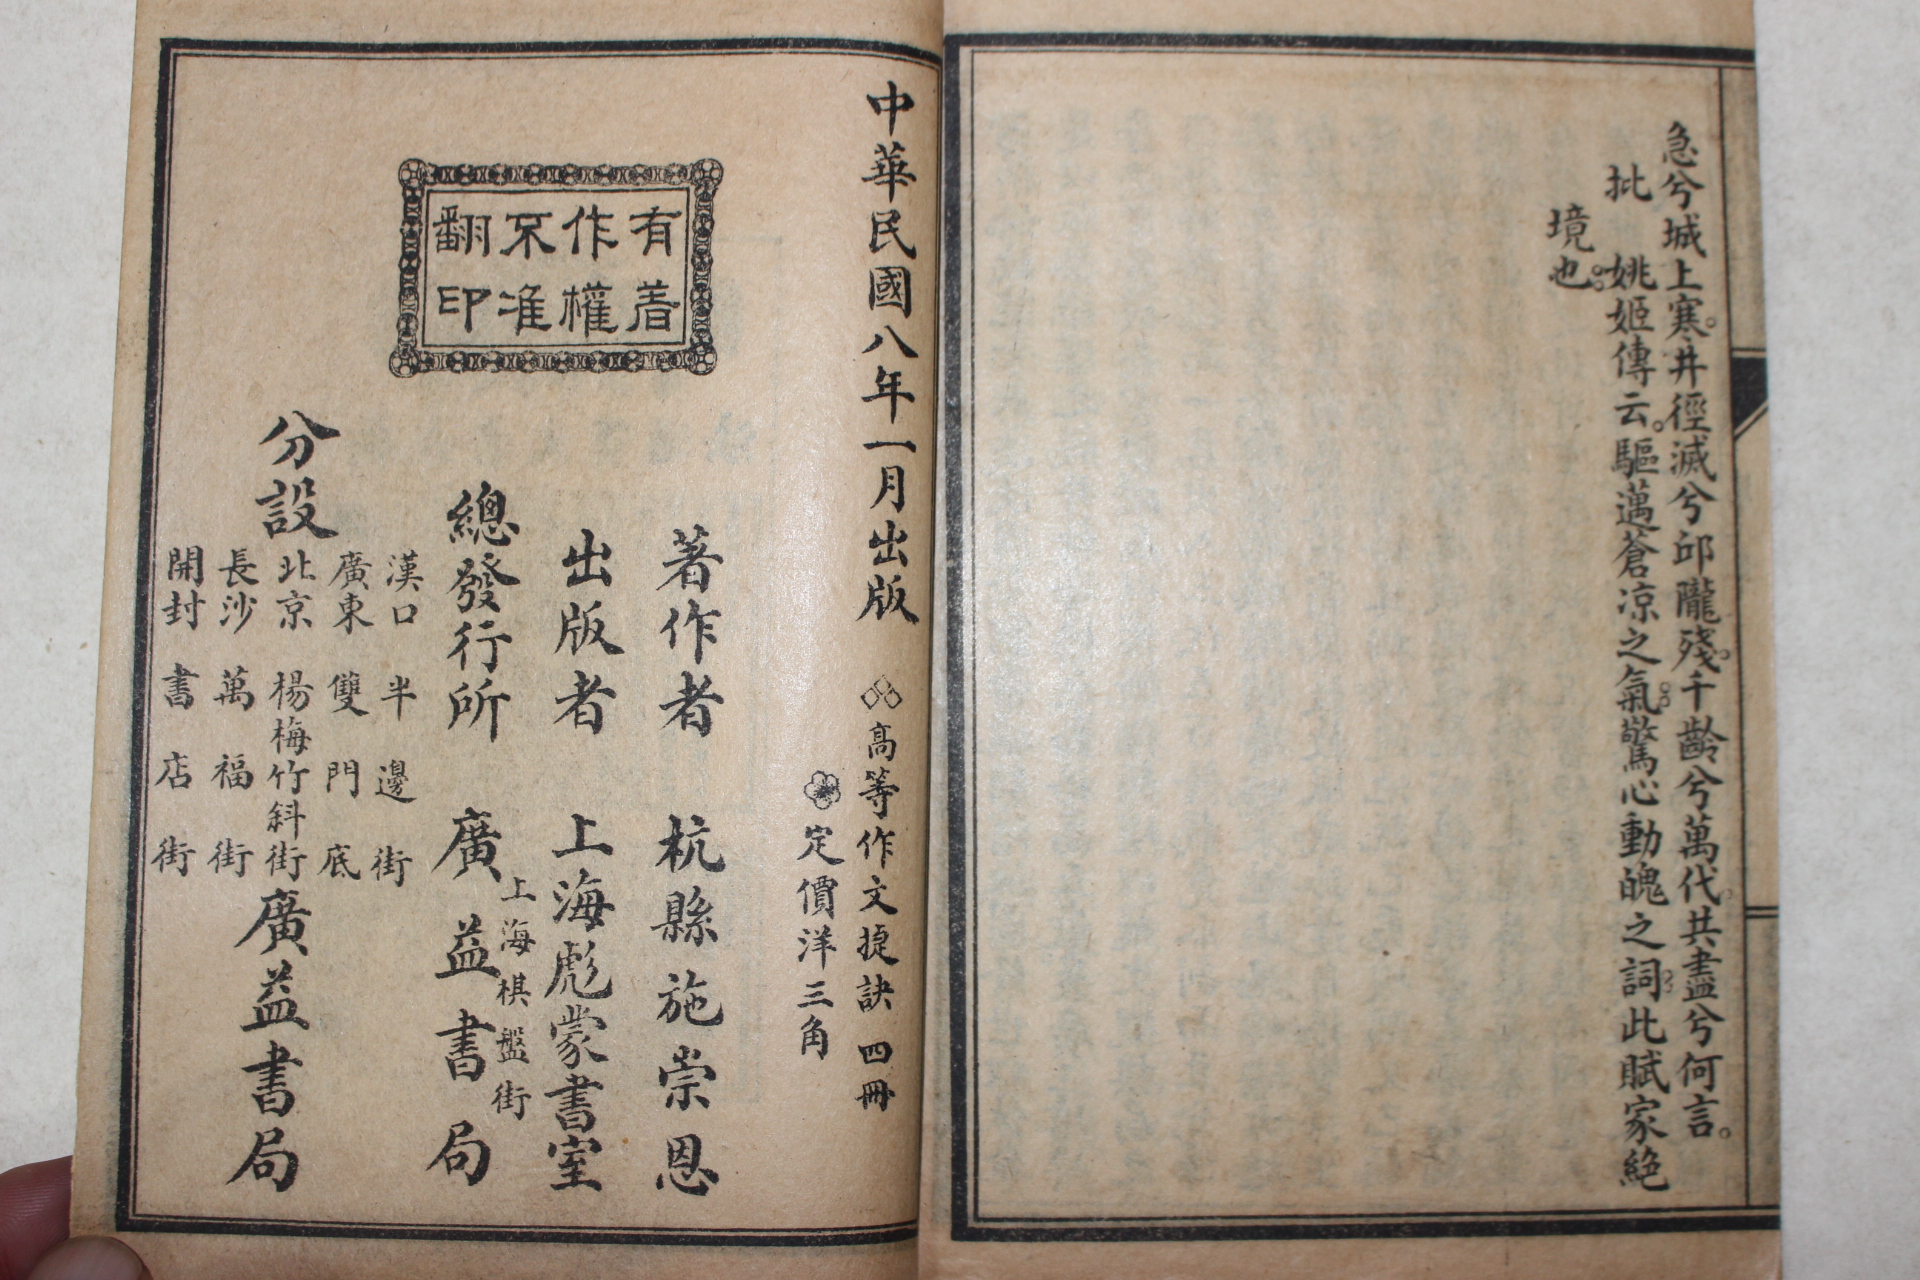 急兮城上寒。井徑滅兮邱隴殘。千齡兮萬代。共盡兮何言。
批　姚姬傳云。驅邁蒼凉之氣。驚心動魄之詞。此賦家絕
境也。
中華民國八年一月出版
高等作文捷訣　四冊
定價洋三角
有着
作權
不准
翻印
著作者　杭縣施崇恩
出版者　上海彪蒙書室
上海棋盤街
總發行所　廣益書局
漢口　半邊街
廣東　雙門底
北京　楊梅竹斜街
長沙　萬福街
開封　書店街
分設　廣益書局